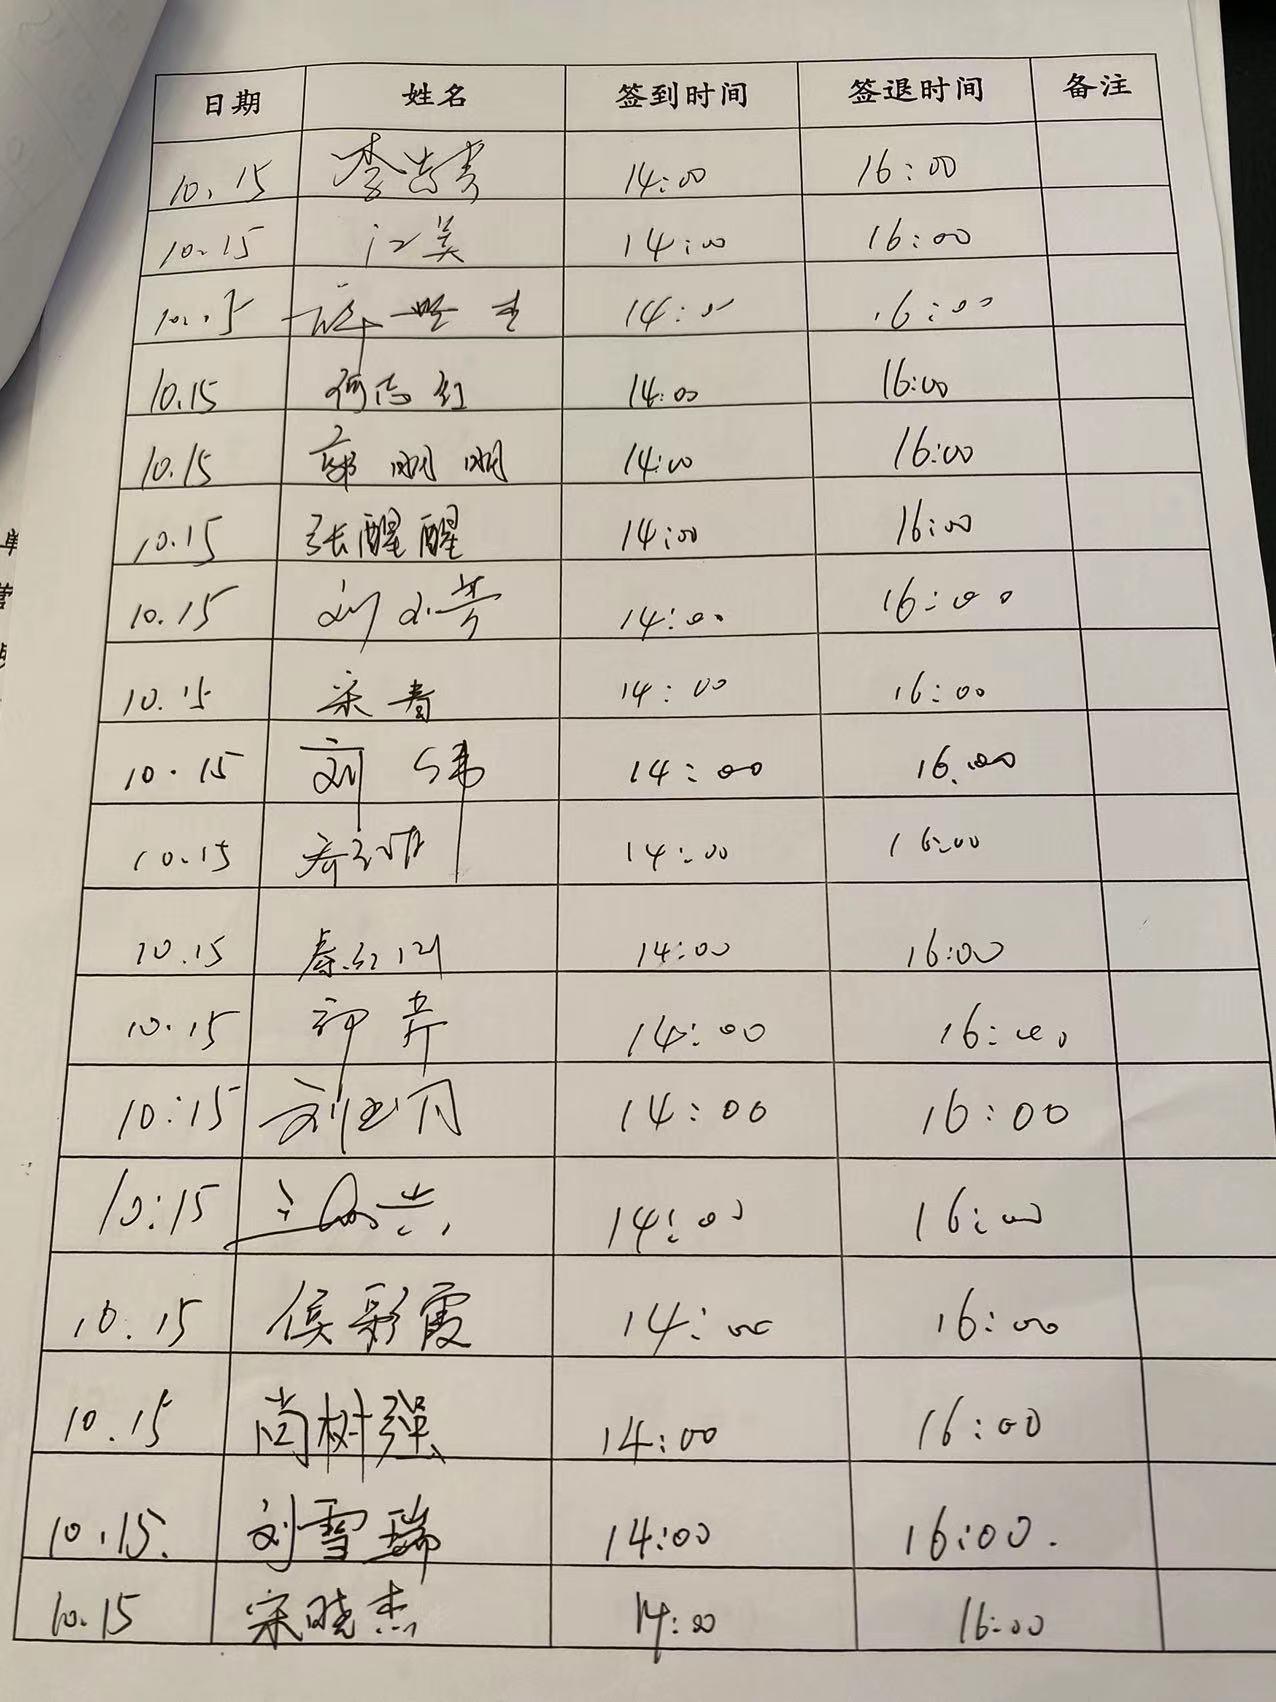 日期 姓名 签到时间 签退时间 备注
10.15 14:00 16:00
10.15 江美 14:00 16:00
14:00 16:00
10.15 何志红 14:00 16:00
10.15 郭明明 14:00 16:00
10.15 张醒醒 14:00 16:00
10.15 刘小芳 14:00 16:00
10.15 宋春 14:00 16:00
10.15 刘 14:00 16:00
10.15 14:00 16:00
10.15 14:00 16:00
10.15 14:00 16:00
10:15 14:00 16:00
10:15 14:00 16:00
10.15 侯彩霞 14:00 16:00
10.15 尚树强 14:00 16:00
10.15. 刘雪瑞 14:00 16:00.
10.15 宋晓杰 14:00 16:00